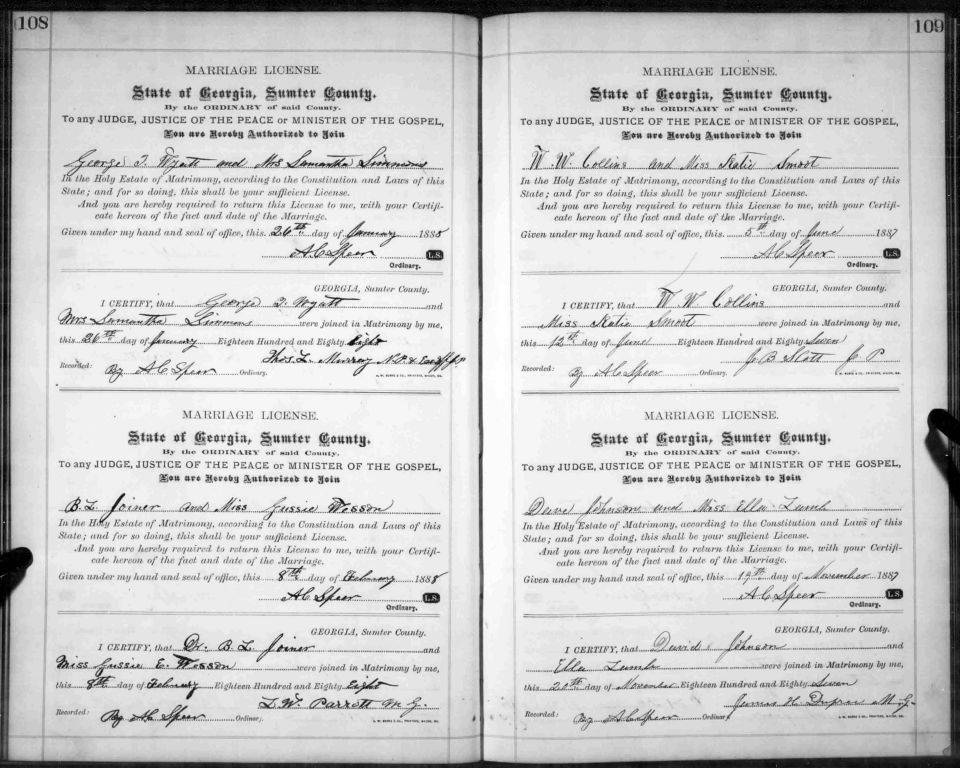 108
MARRIAGE LICENSE.
State of Georgia, Sumter County.
By the ORDINARY of said County.
To any JUDGE, JUSTICE OF THE PEACE or MINISTER OF THE GOSPEL,
You are Hereby Authorized to Join
George T. Wyatt and Mrs Samantha Simmons
In the Holy Estate of Matrimony, according to the Constitution and Laws of this
State; and for so doing, this shall be your sufficient License.
And you are hereby required to return this License to me, with your Certifi-
cate hereon of the fact and date of the Marriage.
Given under my hand and seal of office, this 26th day of January 1888
A C Speer L.S.
Ordinary.
GEORGIA, Sumter County.
I CERTIFY, that George T. Wyatt and
Mrs Samantha Simmons were joined in Matrimony by me,
this 26th day of January Eighteen Hundred and Eighty Eight
Thos. L. Murray N.P. &
Recorded: By A C Speer Ordinary.
MARRIAGE LICENSE.
State of Georgia, Sumter County.
By the ORDINARY of said County.
To any JUDGE, JUSTICE OF THE PEACE or MINISTER OF THE GOSPEL,
You are Hereby Authorized to Join
B. L. Joiner and Miss Gussie Wesson
In the Holy Estate of Matrimony, according to the Constitution and Laws of this
State; and for so doing, this shall be your sufficient License.
And you are hereby required to return this License to me, with your Certifi-
cate hereon of the fact and date of the Marriage.
Given under my hand and seal of office, this 8th day of February 1888
A C Speer L.S.
Ordinary.
GEORGIA, Sumter County.
I CERTIFY, that Dr. B. L. Joiner and
Miss Gussie E. Wesson were joined in Matrimony by me,
this 8th day of February Eighteen Hundred and Eighty Eight
L. W. Parrott M. G.
Recorded: By A C Speer Ordinary.
109
MARRIAGE LICENSE.
State of Georgia, Sumter County.
By the ORDINARY of said County.
To any JUDGE, JUSTICE OF THE PEACE or MINISTER OF THE GOSPEL,
You are Hereby Authorized to Join
W. W. Collins and Miss Katie Smoot
In the Holy Estate of Matrimony, according to the Constitution and Laws of this
State; and for so doing, this shall be your sufficient License.
And you are hereby required to return this License to me, with your Certifi-
cate hereon of the fact and date of the Marriage.
Given under my hand and seal of office, this 5th day of June 1887
A C Speer L.S.
Ordinary.
GEORGIA, Sumter County.
I CERTIFY, that W. W. Collins and
Miss Katie Smoot were joined in Matrimony by me,
this 12th day of June Eighteen Hundred and Eighty Seven
J. B. Slott J. P.
Recorded: By A C Speer Ordinary.
MARRIAGE LICENSE.
State of Georgia, Sumter County.
By the ORDINARY of said County.
To any JUDGE, JUSTICE OF THE PEACE or MINISTER OF THE GOSPEL,
You are Hereby Authorized to Join
Dave Johnson and Miss Ella Lumb
In the Holy Estate of Matrimony, according to the Constitution and Laws of this
State; and for so doing, this shall be your sufficient License.
And you are hereby required to return this License to me, with your Certifi-
cate hereon of the fact and date of the Marriage.
Given under my hand and seal of office, this 19th day of November 1887
A C Speer L.S.
Ordinary.
GEORGIA, Sumter County.
I CERTIFY, that David Johnson and
Ella Lumb were joined in Matrimony by me,
this 20th day of November Eighteen Hundred and Eighty Seven
James H. Dupree M. G.
Recorded: By A C Speer Ordinary